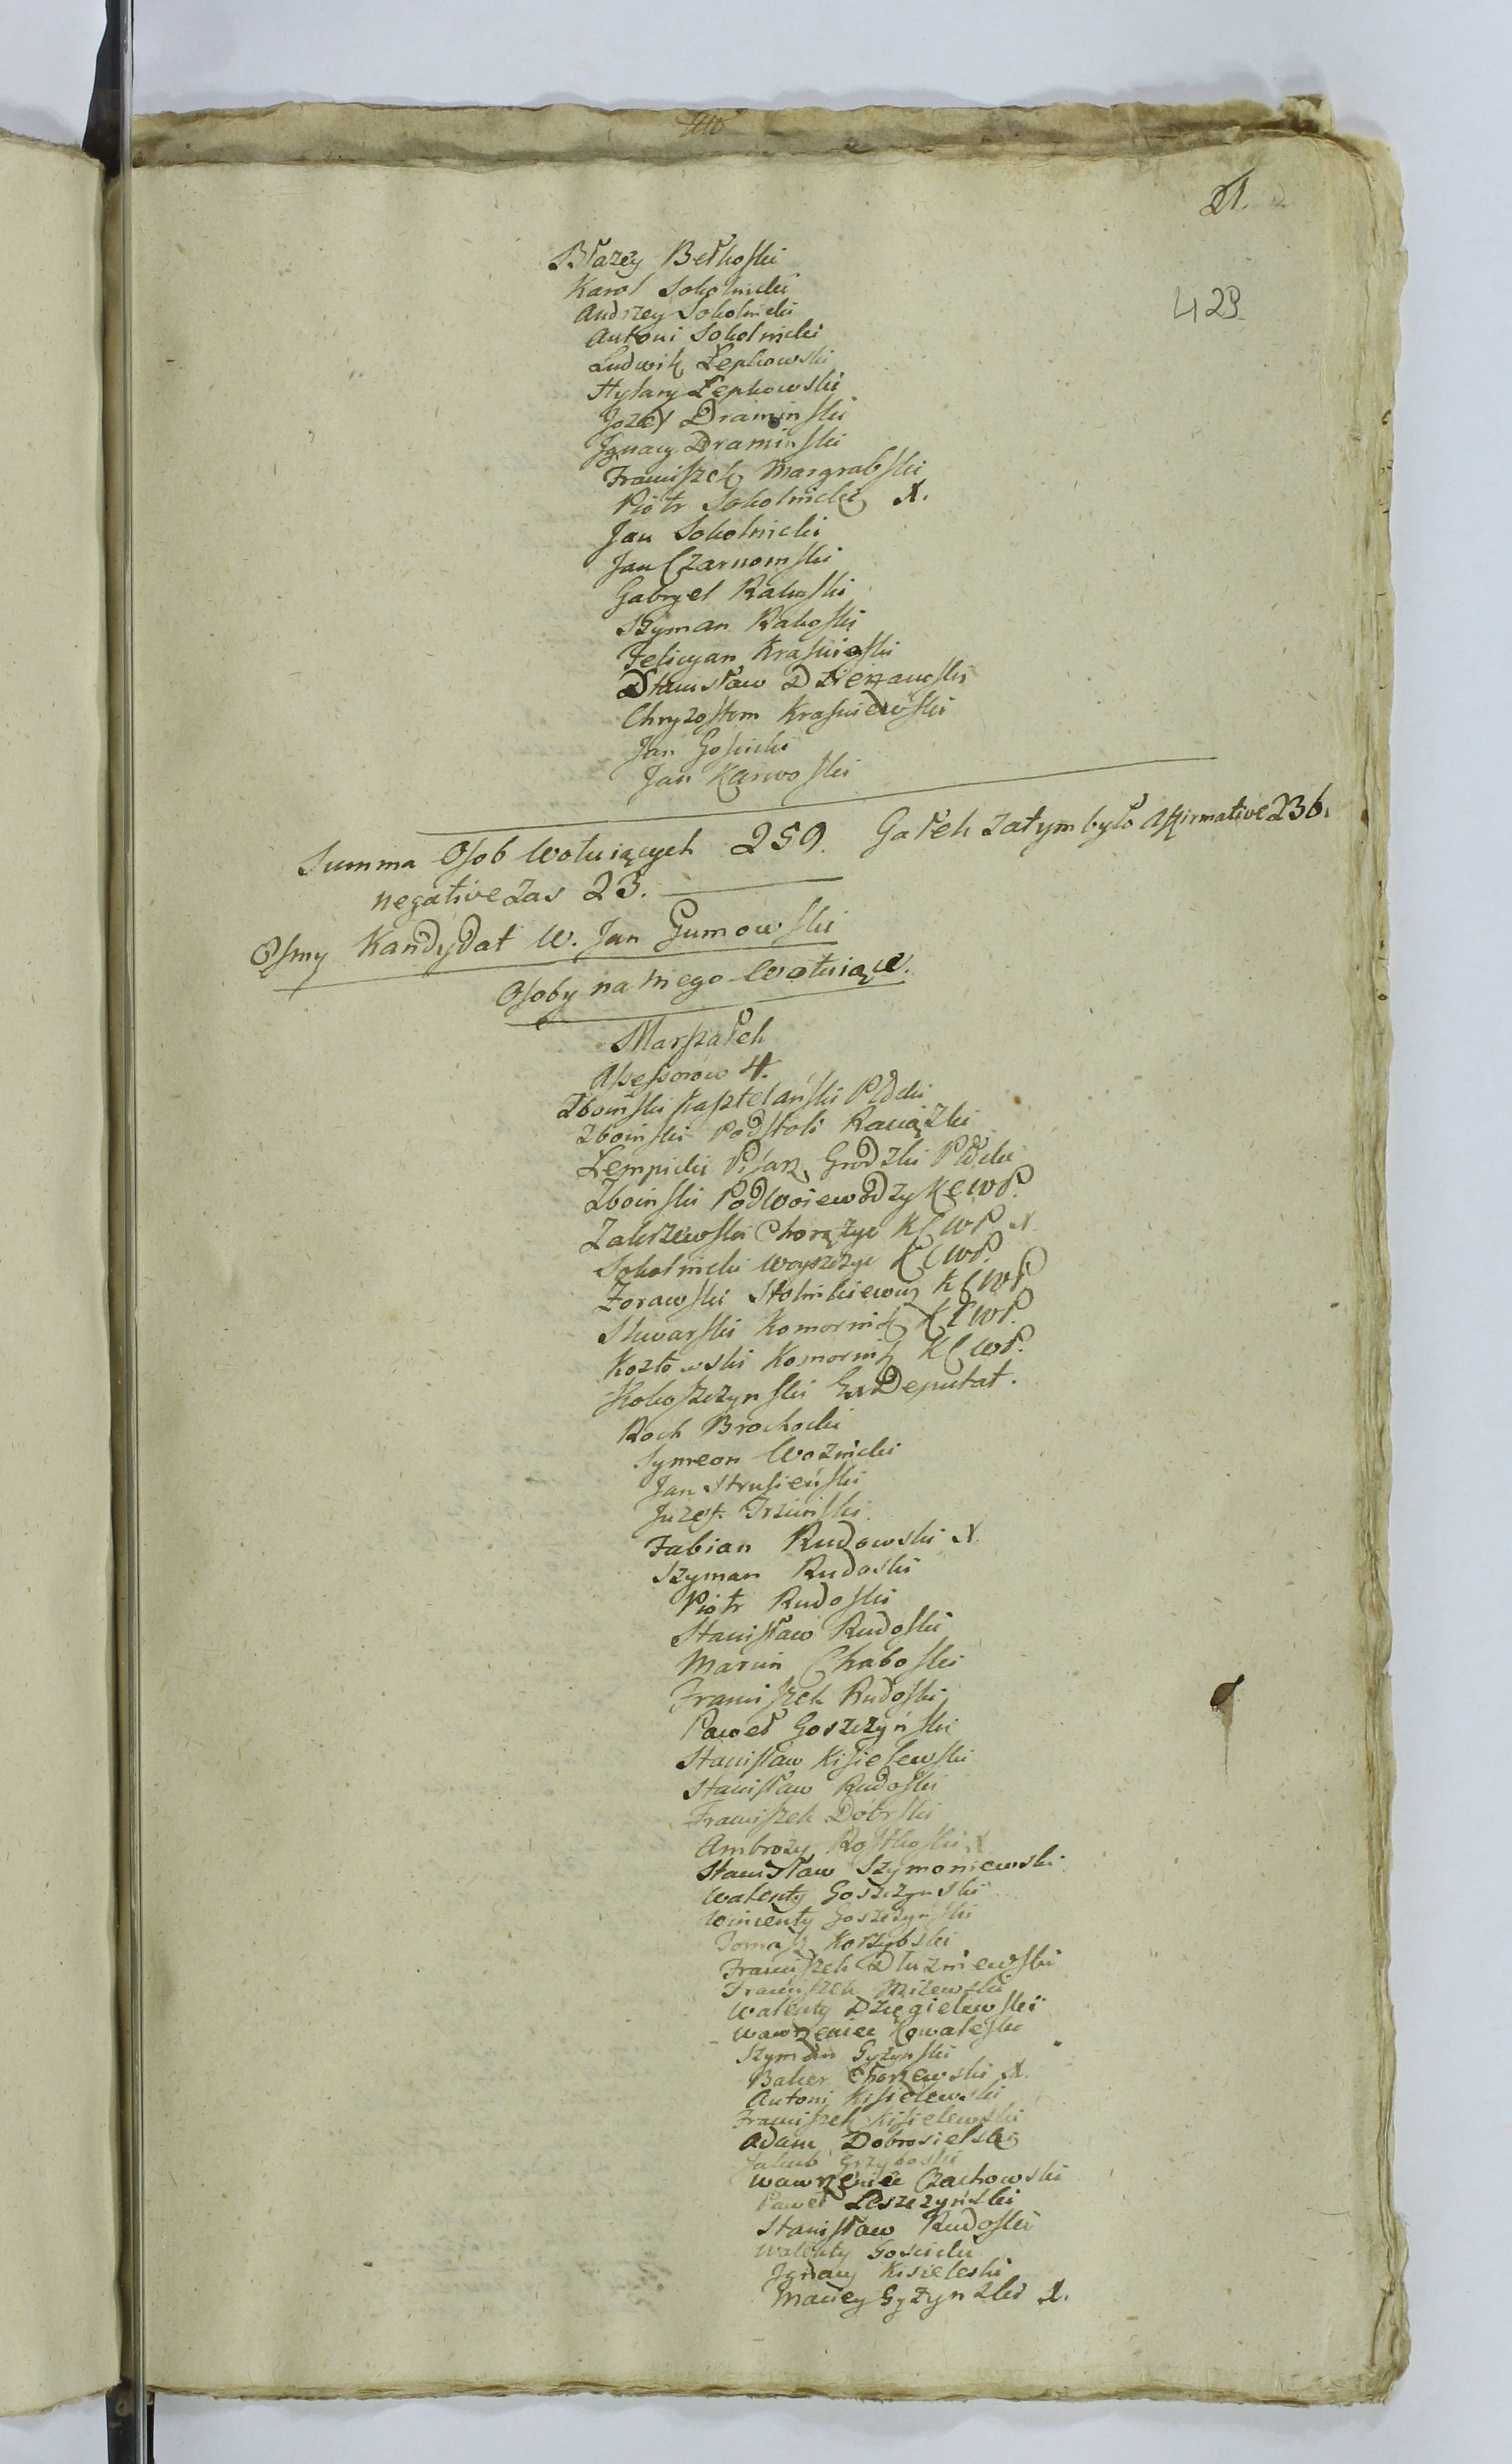 21.
429
Błazey Bełkoski
Karol Sokolnicki
Andrzey Sokolnicki
Antoni Sokolnicki
Ludwik Łepkowski
Hylary Łepkowski
Jozef Dramiński
Jgnacy Dramiński
Franciszek Margrabski
Piotr Sokolnicki X.
Jan Sokolnicki
Jan Czarnomski
Gabryel Rakoski
Szyman Rakoski
Felicyan Krasnieski
Stanisław Dzierzanoski
Chryzostom Krasniewski
Jan Gosicki
Jan Karwoski
Summa Osob Wotuiących 259. Gałek zatym było Affirmative 236.
negative zas 23.
Osmy Kandydat W. Jan Gumowski
Osoby na niego Wotuiące.
Marszałek
Assessorow 4.
Zboinski Kasztelański Płcki
Zboinski Podstoli Raciązki
Łempicki Pisarz Grodzki Płcki
Zboinski Podwoiewodzy KCWP.
Zakrzewski Chorązyc KCWP. X
Sokolnicki Woyszczyc KCWP.
Zorawski Stolnikiewicz KCWP.
Skwarski Komornik KCWP.
Kozłowski Komornik KCWP.
Kokoszczynski ExDeputat.
Roch Brochocki
Symeon Woznicki
Jan Strusieński
Juzef Trzcinski
Fabian Rudowski X
Szyman Rudoski
Piotr Rudoski
Stanisław Rudoski
Marcin Chaboski
Franciszek Rudoski
Paweł Goszczyński
Stanisław Kisielewski
Stanisław Rudoski
Franciszek Dobrski
Ambrozy Rostkoski X
Stanisław Szymoniewski
Walenty Goszczynski
Wincenty Goszczynski
Tomasz Korzybski
Franciszek Dłuzniewski
Franciszek Milewski
Walenty Dzięgielewski
Wawrzeniec Kowaleski
Szyman Gyzynski
Balcer Chorzewski X.
Antoni Kisielewski
Franciszek Kisielewski
Adam Dobrosielski
Jakub Grzyboski
Wawrzeniec Czachowski
Paweł Leszczyński
Stanisław Rudoski
Walenty Gosicki
Jgnacy Kisieleski
Maciey Gyzynski X.